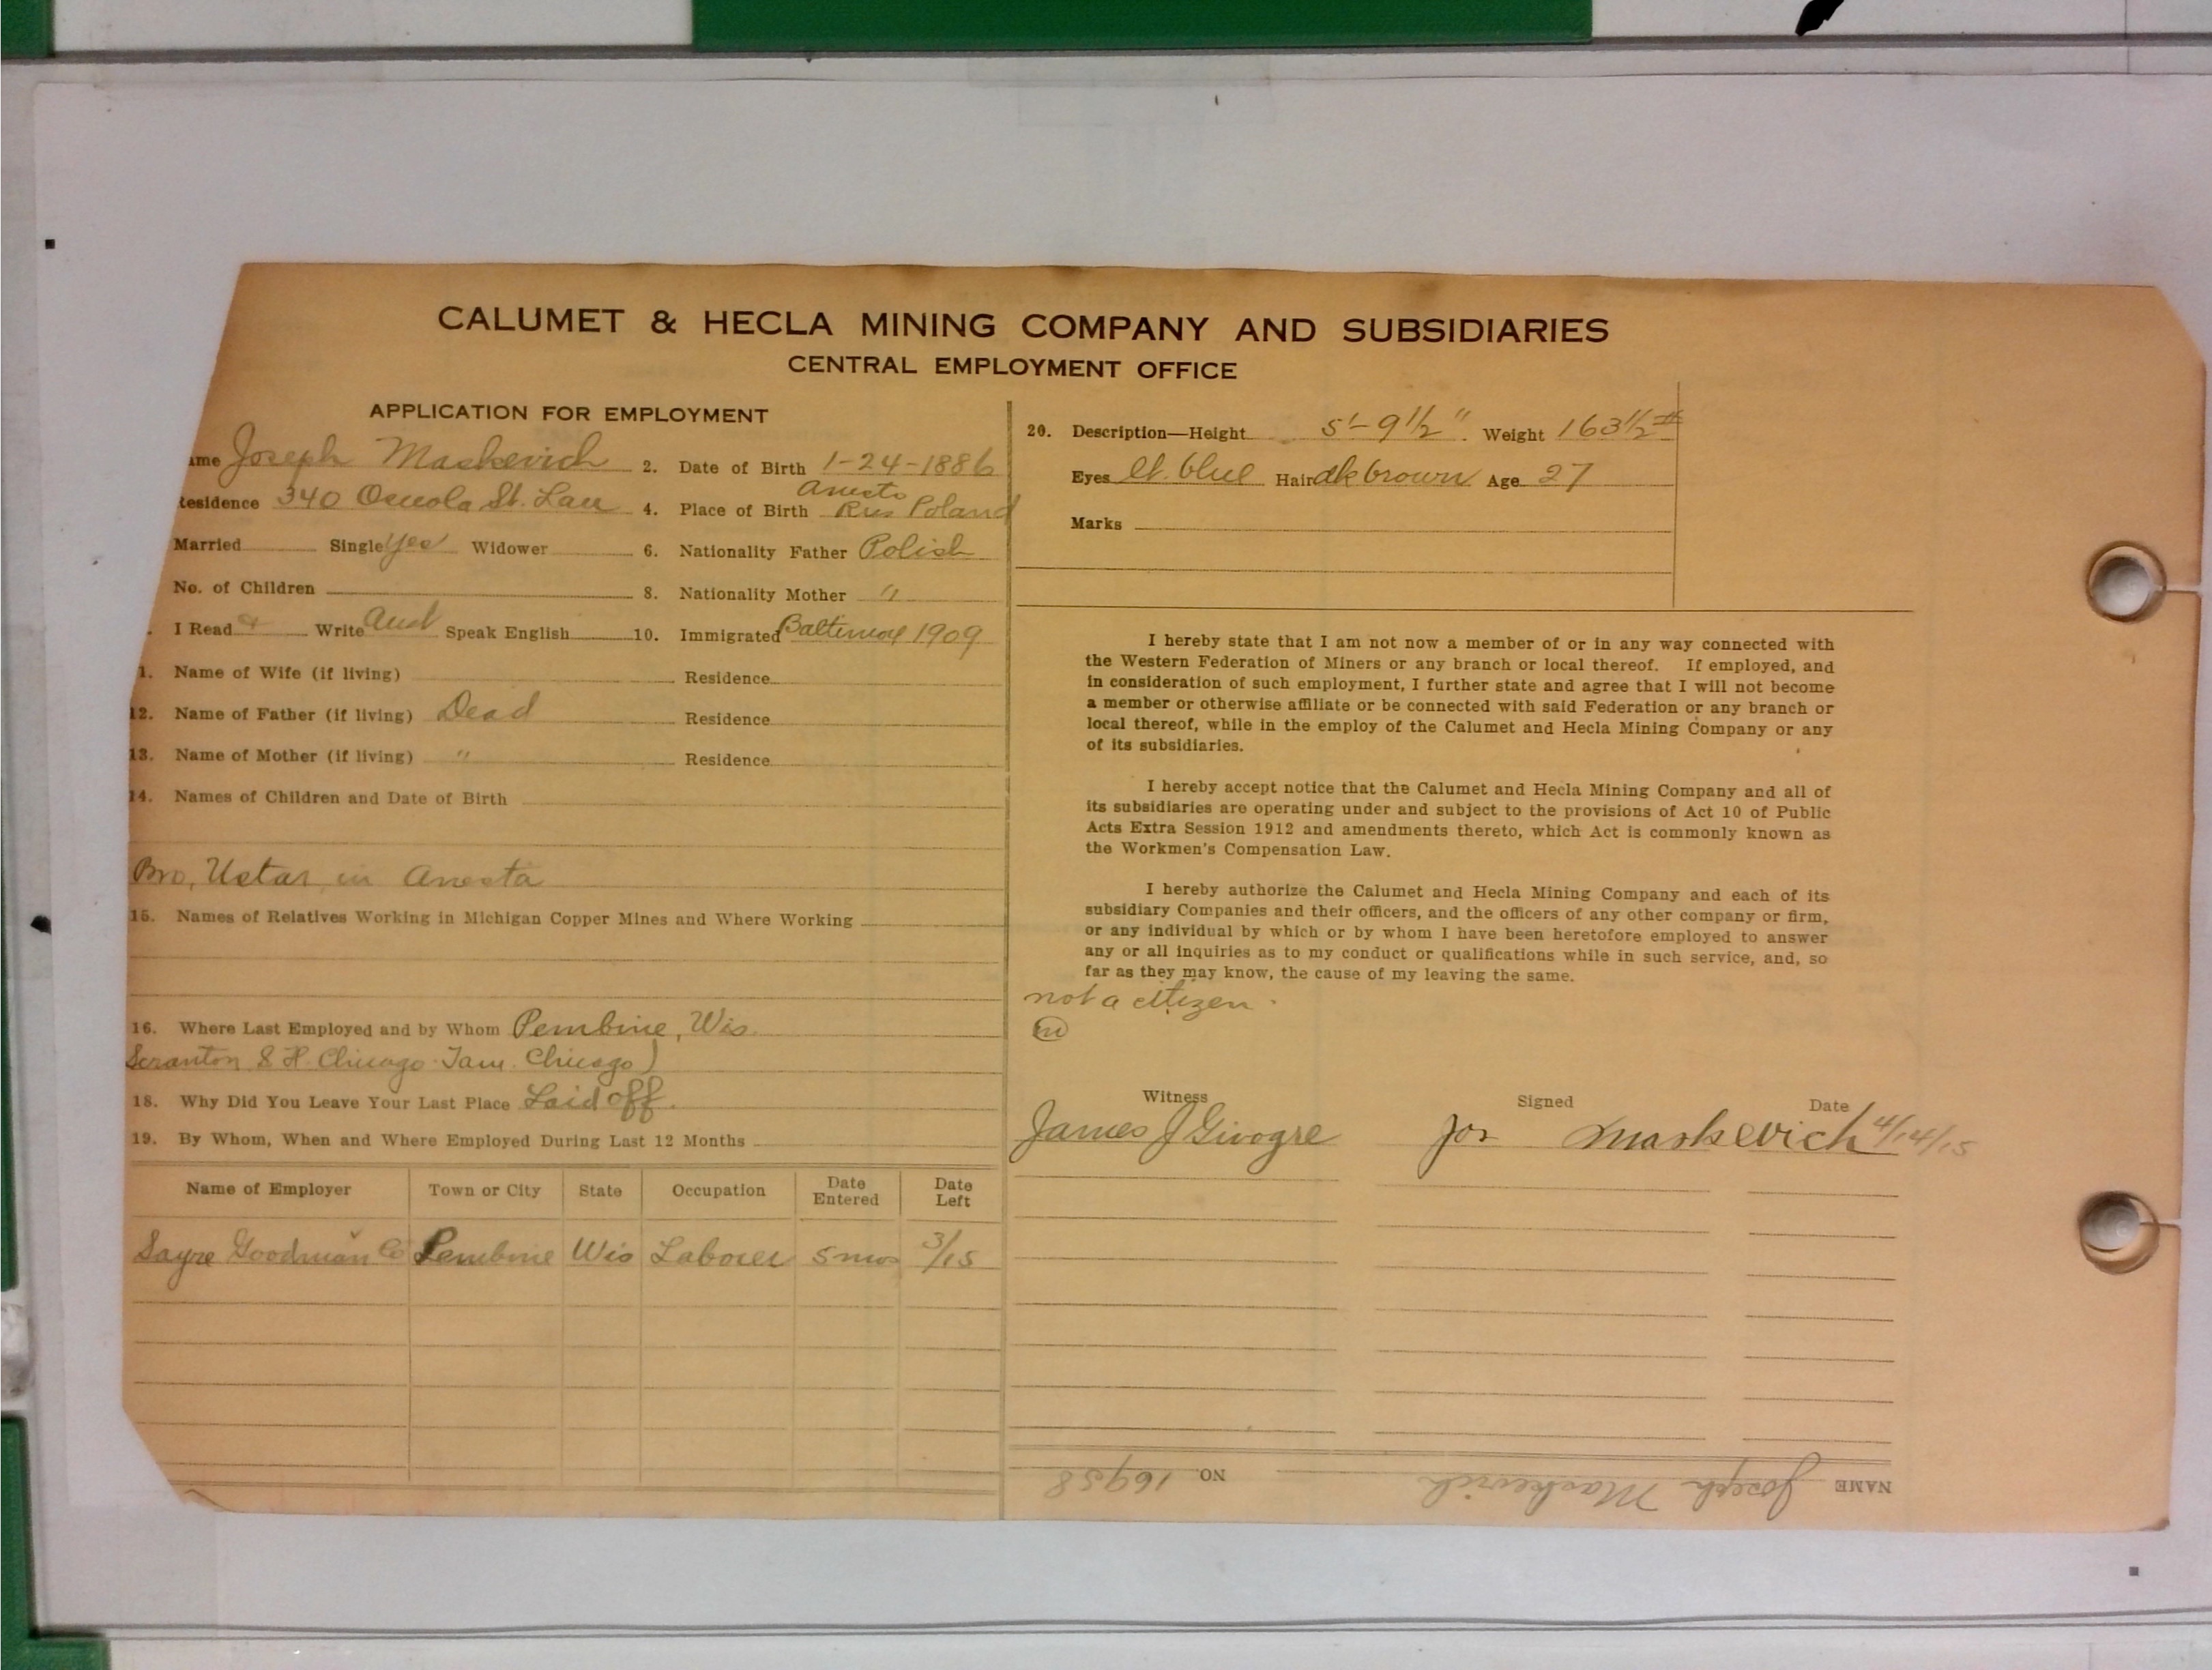 CALUMET & HECLA MINING COMPANY AND SUBSIDIARIES
CENTRAL EMPLOYMENT OFFICE
APPLICATION FOR EMPLOYMENT
ame Joseph Maskevich 2. Date of Birth 1-24-1886
esidence 340 Osceola St. Lau 4. Place of Birth Rus Poland
Married Single Yes Widower 6. Nationality Father Polish
No. of Children 8. Nationality Mother "
I Read & Write and Speak English 10. Immigrated Baltimore 1909
1. Name of Wife (if living) Residence
12. Name of Father (if living) Dead Residence
13. Name of Mother (if living) " Residence
14. Names of Children and Date of Birth
Bro, in
15. Names of Relatives Working in Michigan Copper Mines and Where Working
16. Where Last Employed and by Whom Pembine, Wis.
Scranton S H. Chicago Chicago)
18. Why Did You Leave Your Last Place Laid off.
19. By Whom, When and Where Employed During Last 12 Months
Name of Employer Town or City State Occupation Date Entered Date Left
Sayre Goodman Co Pembine Wis Laborer 5 mos 3/15
20. Description—Height 5'-9 1/2" Weight 163 1/2 #
Eyes lt. blue Hair dk brown Age 27
Marks
I hereby state that I am not now a member of or in any way connected with
the Western Federation of Miners or any branch or local thereof. If employed, and
in consideration of such employment, I further state and agree that I will not become
a member or otherwise affiliate or be connected with said Federation or any branch or
local thereof, while in the employ of the Calumet and Hecla Mining Company or any
of its subsidiaries.
I hereby accept notice that the Calumet and Hecla Mining Company and all of
its subsidiaries are operating under and subject to the provisions of Act 10 of Public
Acts Extra Session 1912 and amendments thereto, which Act is commonly known as
the Workmen's Compensation Law.
I hereby authorize the Calumet and Hecla Mining Company and each of its
subsidiary Companies and their officers, and the officers of any other company or firm,
or any individual by which or by whom I have been heretofore employed to answer
any or all inquiries as to my conduct or qualifications while in such service, and, so
far as they may know, the cause of my leaving the same.
not a citizen.
Witness Signed Date
James J Givogre Jos Maskevich 4/14/15
NAME Joseph Maskevich NO. 16958